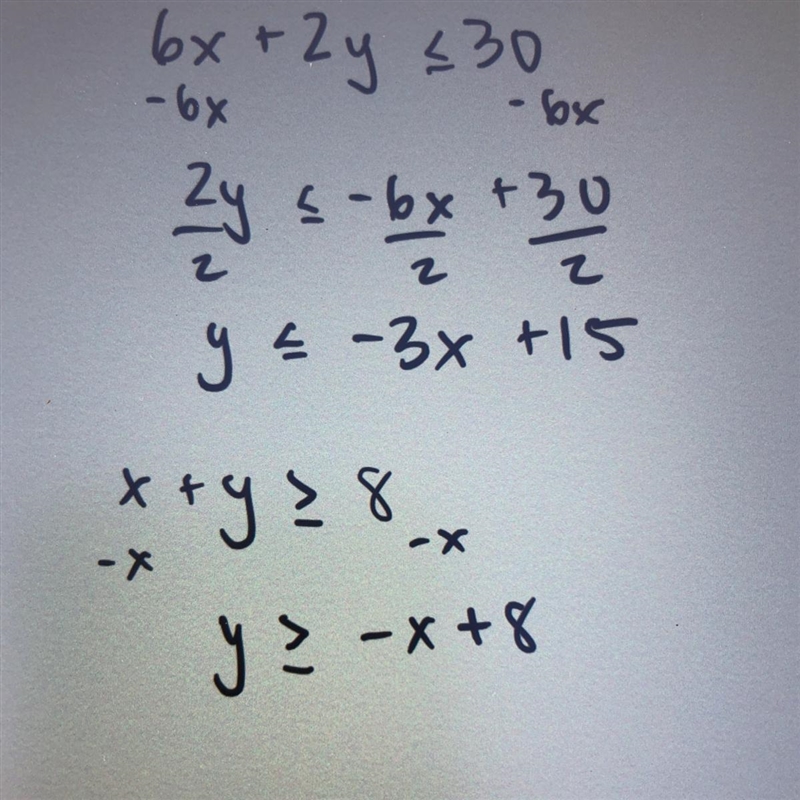 6x + 2y ≤ 30
-6x -6x
2y ≤ -6x + 30
2 2 2
y ≤ -3x + 15
x + y ≥ 8
-x -x
y ≥ -x + 8